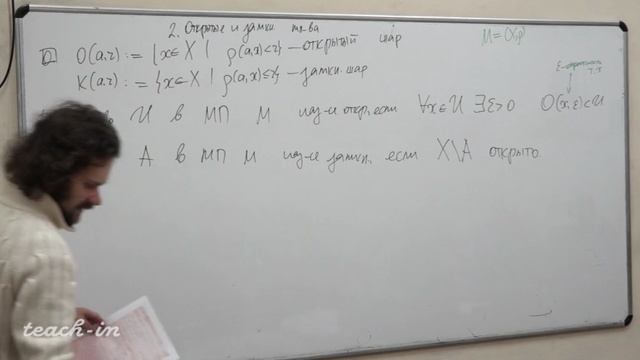 2. Открытые и замкн. мн-ва
M=(X,ρ)
O(a,r) := {x∈X | ρ(a,x)<r} — открытый шар
K(a,r) := {x∈X | ρ(a,x)≤r} — замкн. шар
ε-окрестность т. x
U в МП M наз-ся откр., если ∀x∈U ∃ε>0 O(x,ε)⊂U
A в МП M наз-ся замкн., если X\A открыто.
teach-in